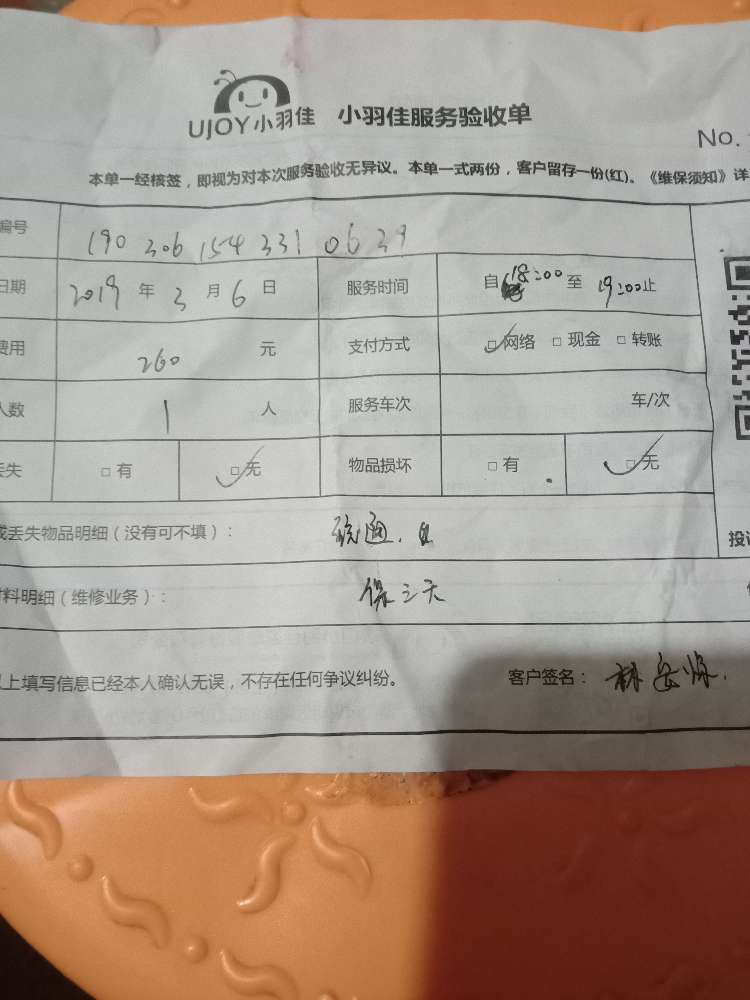 UJOY小羽佳 小羽佳服务验收单
No.
本单一经核签，即视为对本次服务验收无异议。本单一式两份，客户留存一份(红)。《维保须知》详
编号 1903061543310639
日期 2019年3月6日 服务时间 自18:00至19:00止
费用 260元 支付方式 □网络 □现金 □转账
人数 1人 服务车次 车/次
丢失 □有 □无 物品损坏 □有 □无
或丢失物品明细（没有可不填）：
投诉
材料明细（维修业务）： 保三天
以上填写信息已经本人确认无误，不存在任何争议纠纷。 客户签名：林